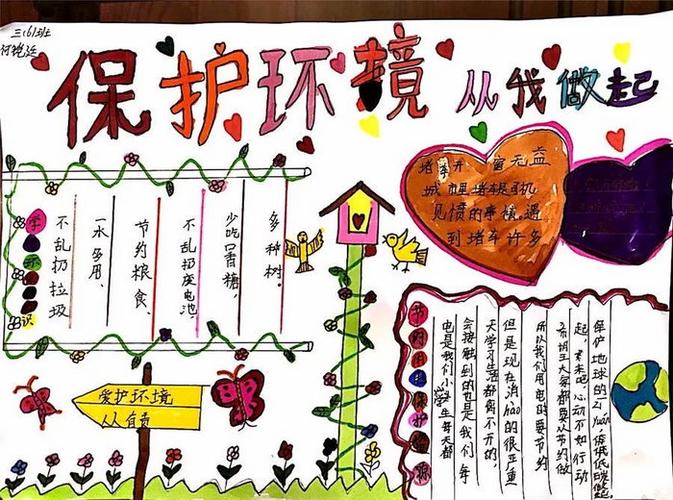 三(6)班
保护环境
从我做起
堵车开 窗无益
城里堵车是司机
见惯的事情。遇
到堵车许多
学
环
识
不乱扔垃圾
一水多用、
节约粮食、
不乱扔废电池、
少吃口香糖、
多种树。
爱护环境
从
节
约
用
保
护
也是我们小学生每天都
会接触到的也是我们每
天学习生活都离不开的,
但是现在消hào的很严重
所以我们用电时要节约
希望大家都要从节约做
起,来吧,心动不如行动
保护地球的